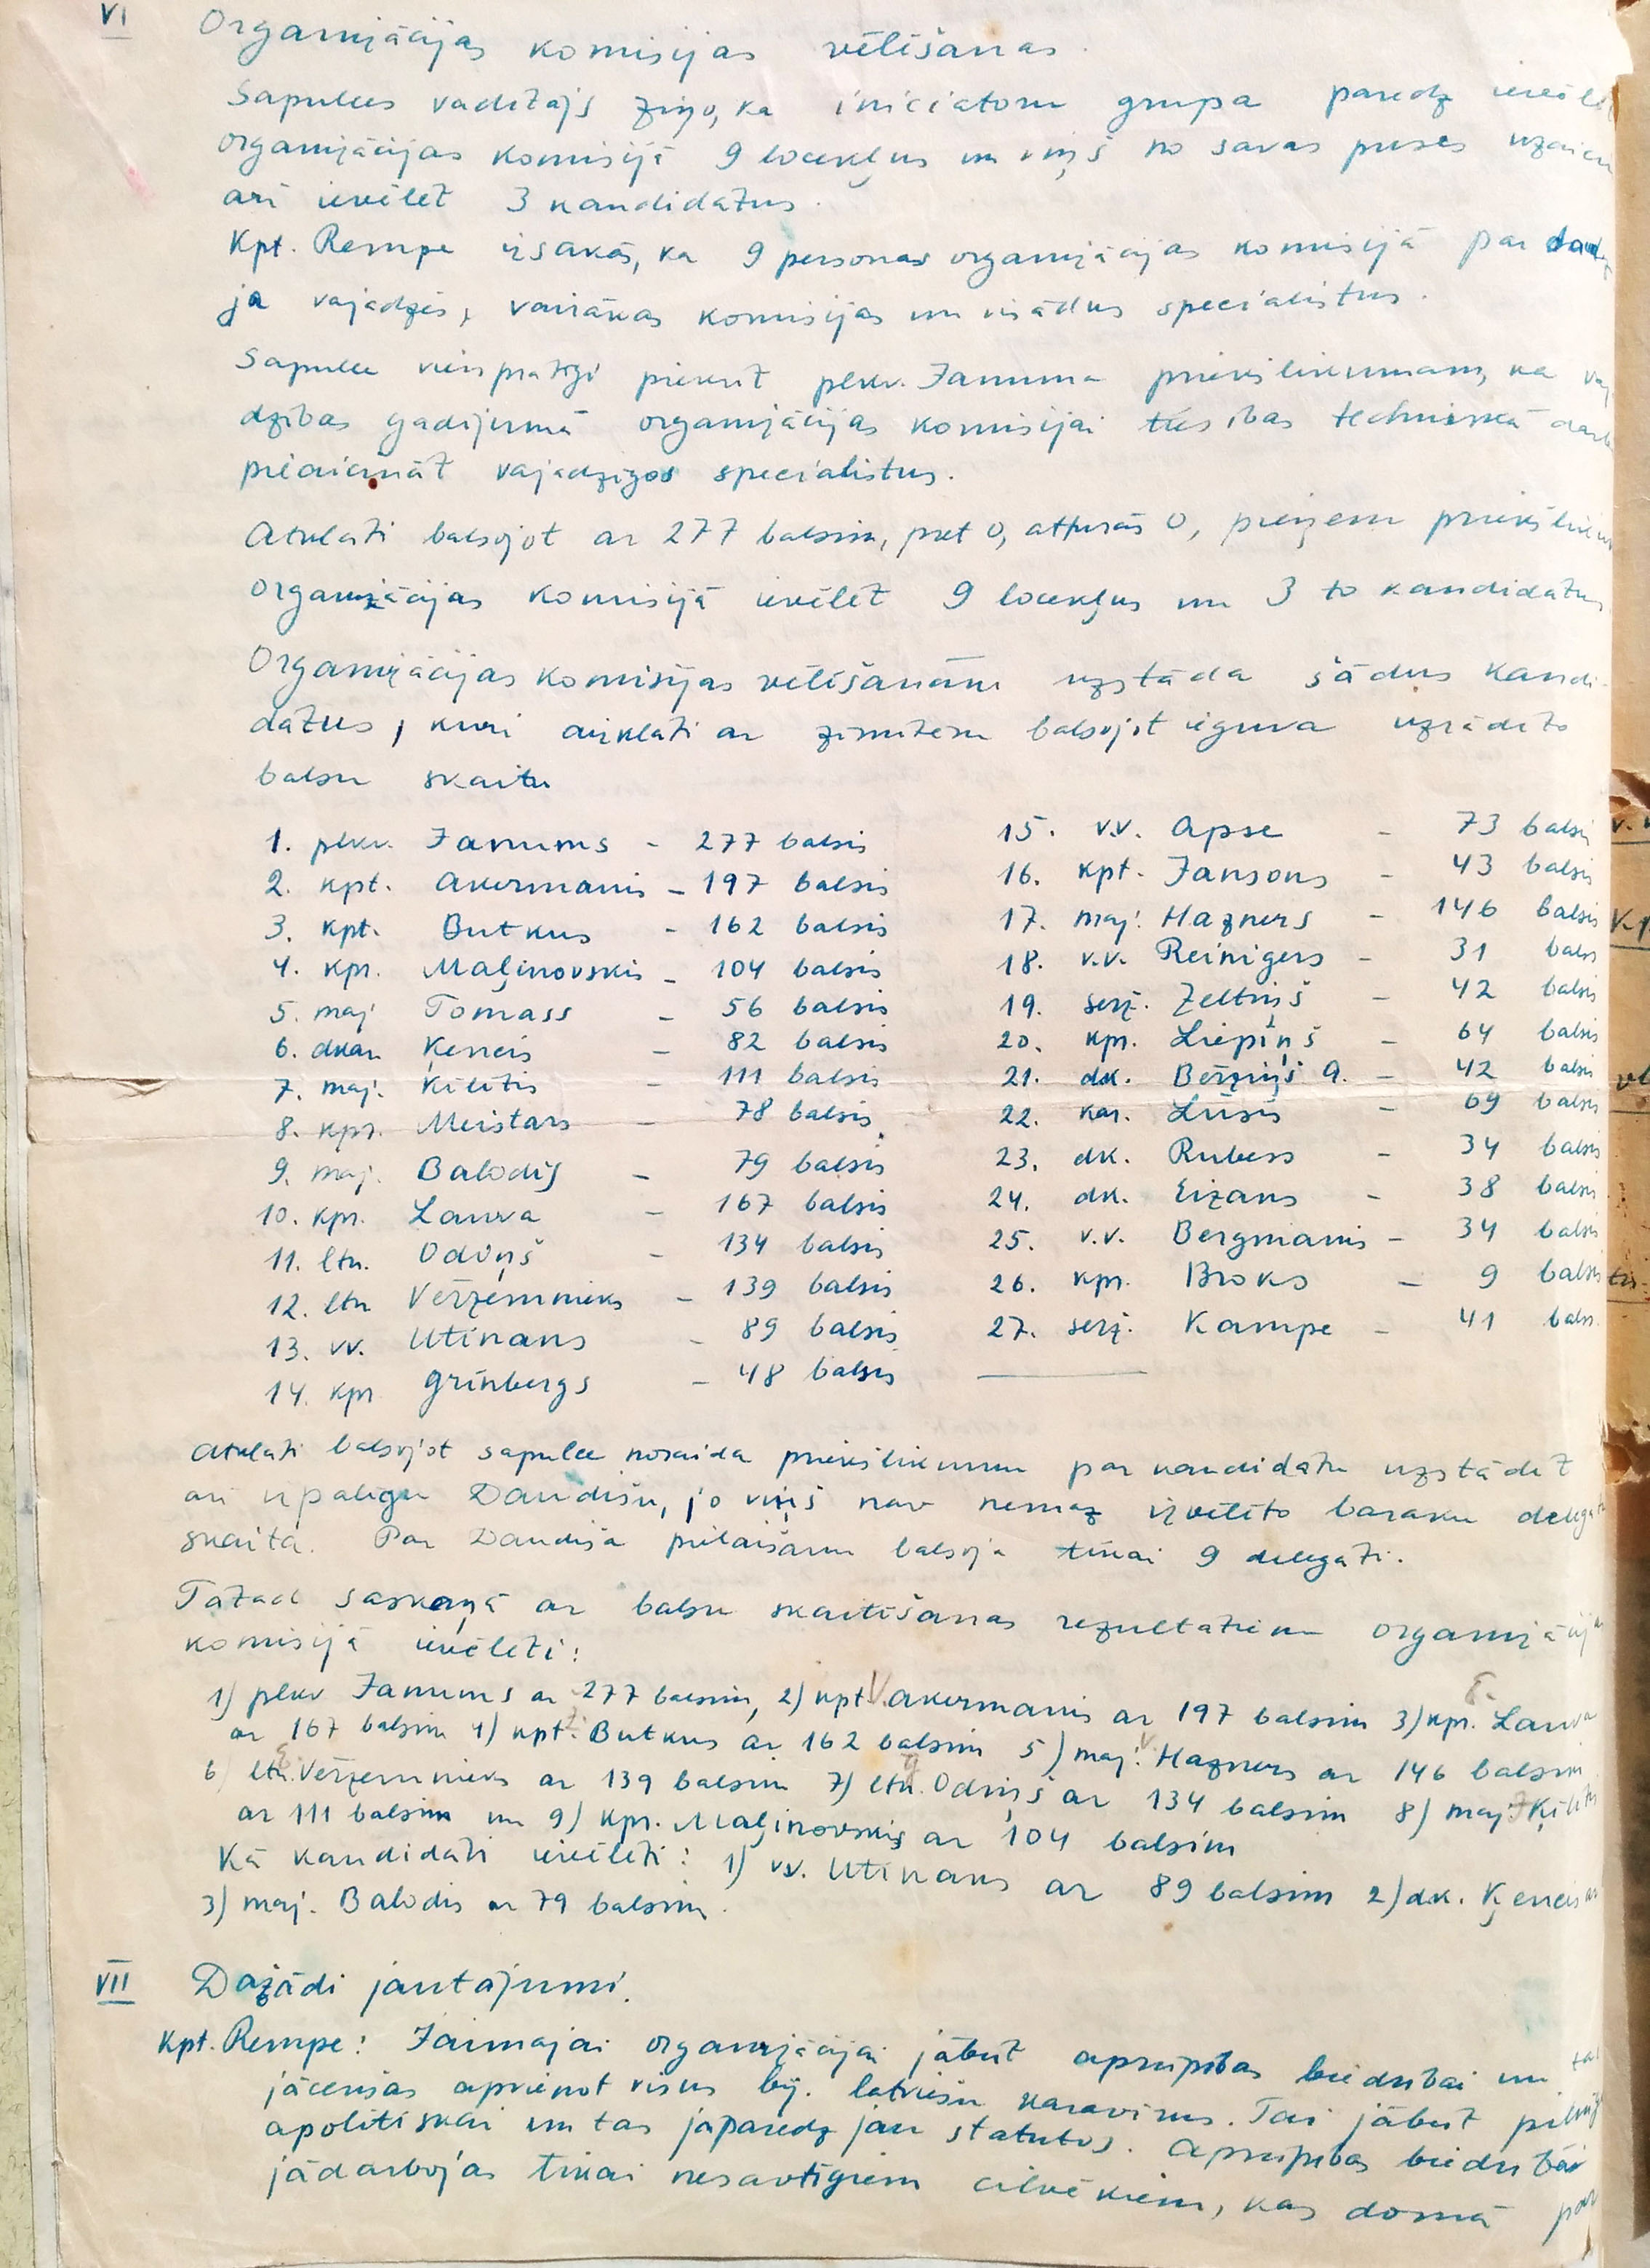 VI Organizācijas komisijas vēlēšanas.
Sapulces vadītājs ziņo, ka iniciatoru grupa paredz ievēlēt
organizācijas komisijā 9 locekļus un viņš no savas puses
arī ievēlēt 3 kandidātus.
Kpt. Rempe izsakās, ka 9 personas organizācijas komisijā par daudz
ja vajadzēs, vairākas komisijas un visādus speciālistus.
Sapulce vienprātīgi piekrīt plkv. Januma priekšlikumam, ka
dzības gadījumā organizācijas komisijai tiesības techniskā
pieaicināt vajadzīgos speciālistus.
Atklāti balsojot ar 277 balsīm, pret 0, atturās 0, pieņem
organizācijas komisijā ievēlēt 9 locekļus un 3 to kandidātus
Organizācijas komisijas vēlēšanām uzstāda šādus kandi-
dātus, kuri atklāti ar zīmītēm balsojot ieguva uzrādīto
balsu skaitu
1. plkv. Janums - 277 balsis
2. kpt. Akermanis - 197 balsis
3. kpt. Butkus - 162 balsis
4. kpr. Maļinovskis - 104 balsis
5. maj Tomass - 56 balsis
6. dkar Ķencis - 82 balsis
7. maj. Ķīlītis - 111 balsis
8. kpr. Meistars - 78 balsis
9. maj. Balodis - 79 balsis
10. kpr. Lauva - 167 balsis
11. ltn. Odiņš - 134 balsis
12. ltn Vērzemnieks - 139 balsis
13. vv. Utināns - 89 balsis
14. kpr Grīnbergs - 48 balsis
15. v.v. Apse - 73 balsis
16. kpt. Jansons - 43 balsis
17. maj. Hazners - 146 balsis
18. v.v. Reinigers - 31 balss
19. serž. Zeltiņš - 42 balsis
20. kpr. Liepiņš - 64 balsis
21. dk. Bērziņš A. - 42 balsis
22. kar. Lūsis - 69 balsis
23. dk. Rubess - 34 balsis
24. dk. Eizans - 38 balsis
25. v.v. Bergmanis - 34 balsis
26. kpr. Broks - 9 balsis
27. serž. Kampe - 41 balss.
Atklāti balsojot sapulce noraida priekšlikumu par kandidātu uzstādīt
arī kpalīgu Daudišu, jo viņš nav nemaz izvēlēto baraku
skaitā. Par Daudiša pielaišanu balsoja tikai 9 delegāti.
Tātad saskaņā ar balsu skaitīšanas rezultātiem
komisijā ievēlēti:
1) plkv Janums ar 277 balsīm, 2) kpt V. Akermanis ar 197 balsīm 3) kpr. Lauva
ar 167 balsīm 4) kpt. Butkus ar 162 balsīm 5) maj. V. Hazners ar 146 balsīm
6) ltn. Vērzemnieks ar 139 balsīm 7) ltn. Odiņš ar 134 balsīm 8) maj. J Ķīlītis
ar 111 balsīm un 9) kpr. Maļinovskis ar 104 balsīm
Kā kandidāti ievēlēti: 1) vv. Utināns ar 89 balsīm 2) dk. Ķencis ar
3) maj. Balodis ar 79 balsīm.
VII Dažādi jautājumi.
Kpt. Rempe: Jaunajai organizācijai jābūt aprūpības biedrībai un
jācenšas apvienot visus bij. latviešu karavīrus. Tai jābūt
apolitiskai un tas jāparedz jau statutos. Aprūpības biedrībai
jādarbojas tikai nesavtīgiem cilvēkiem, kas domā par